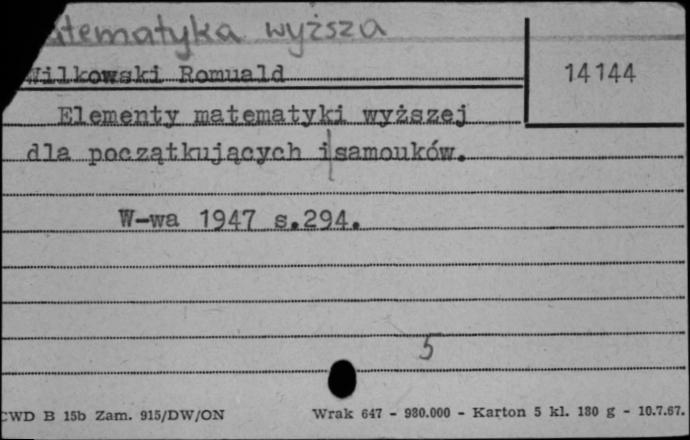 atematyka wyższa
Wilkowski Romuald
14144
Elementy matematyki wyższej
dla początkujących i|samouków.
W-wa 1947 s.294.
5
CWD B 15b Zam. 915/DW/ON
Wrak 647 - 980.000 - Karton 5 kl. 180 g - 10.7.67.